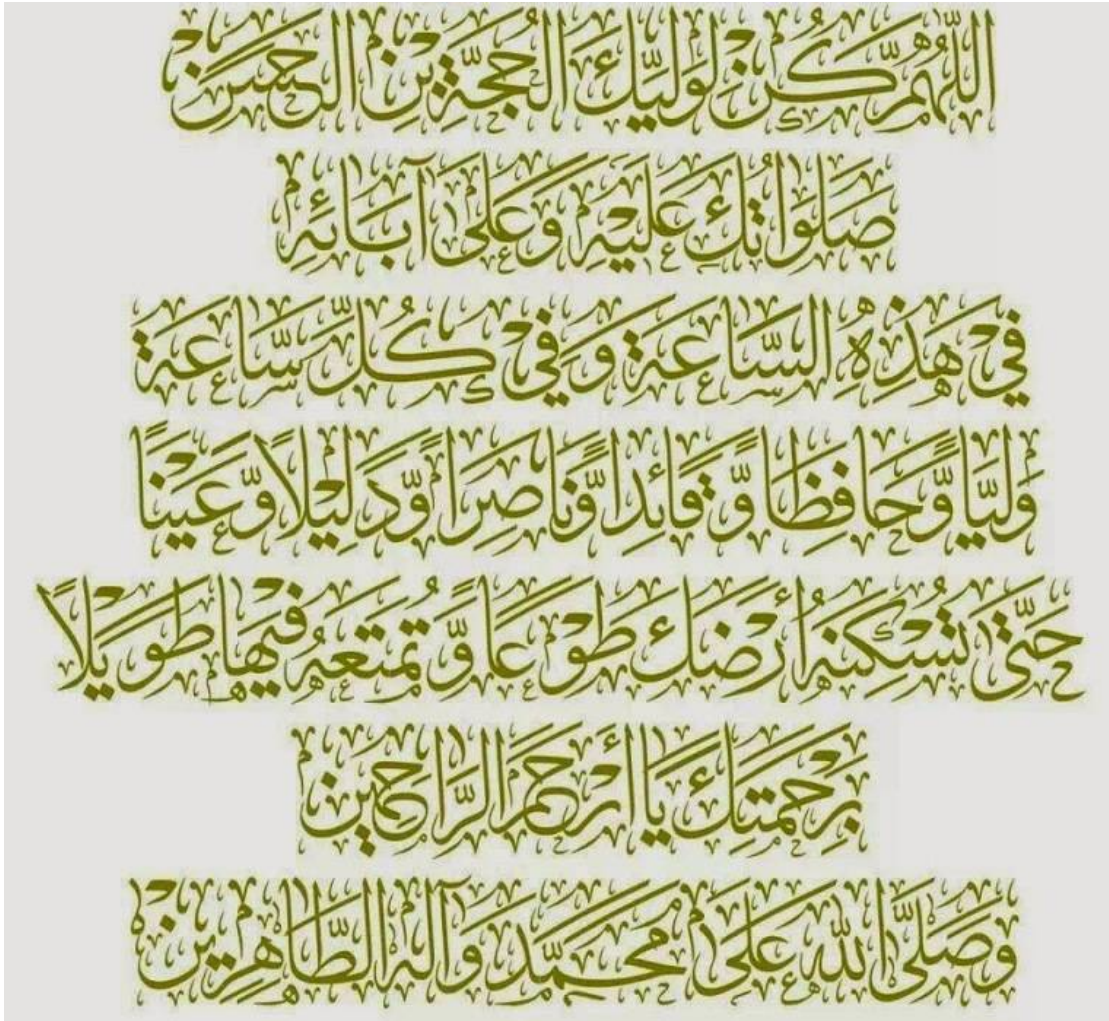 اللّٰهُمَّ كُنْ لِوَلِيِّكَ الْحُجَّةِ بْنِ الْحَسَنِ
صَلَوَاتُكَ عَلَيْهِ وَعَلَىٰ آبَائِهِ
فِي هَٰذِهِ السَّاعَةِ وَفِي كُلِّ سَاعَةٍ
وَلِيًّا وَّحَافِظًا وَّقَائِدًا وَّنَاصِرًا وَّدَلِيْلًا وَّعَيْنًا
حَتَّىٰ تُسْكِنَهُ أَرْضَكَ طَوْعًا وَّتُمَتِّعَهُ فِيْهَا طَوِيْلًا
بِرَحْمَتِكَ يَا أَرْحَمَ الرَّاحِمِيْنَ
وَصَلَّى اللّٰهُ عَلَىٰ مُحَمَّدٍ وَآلِهِ الطَّاهِرِيْنَ